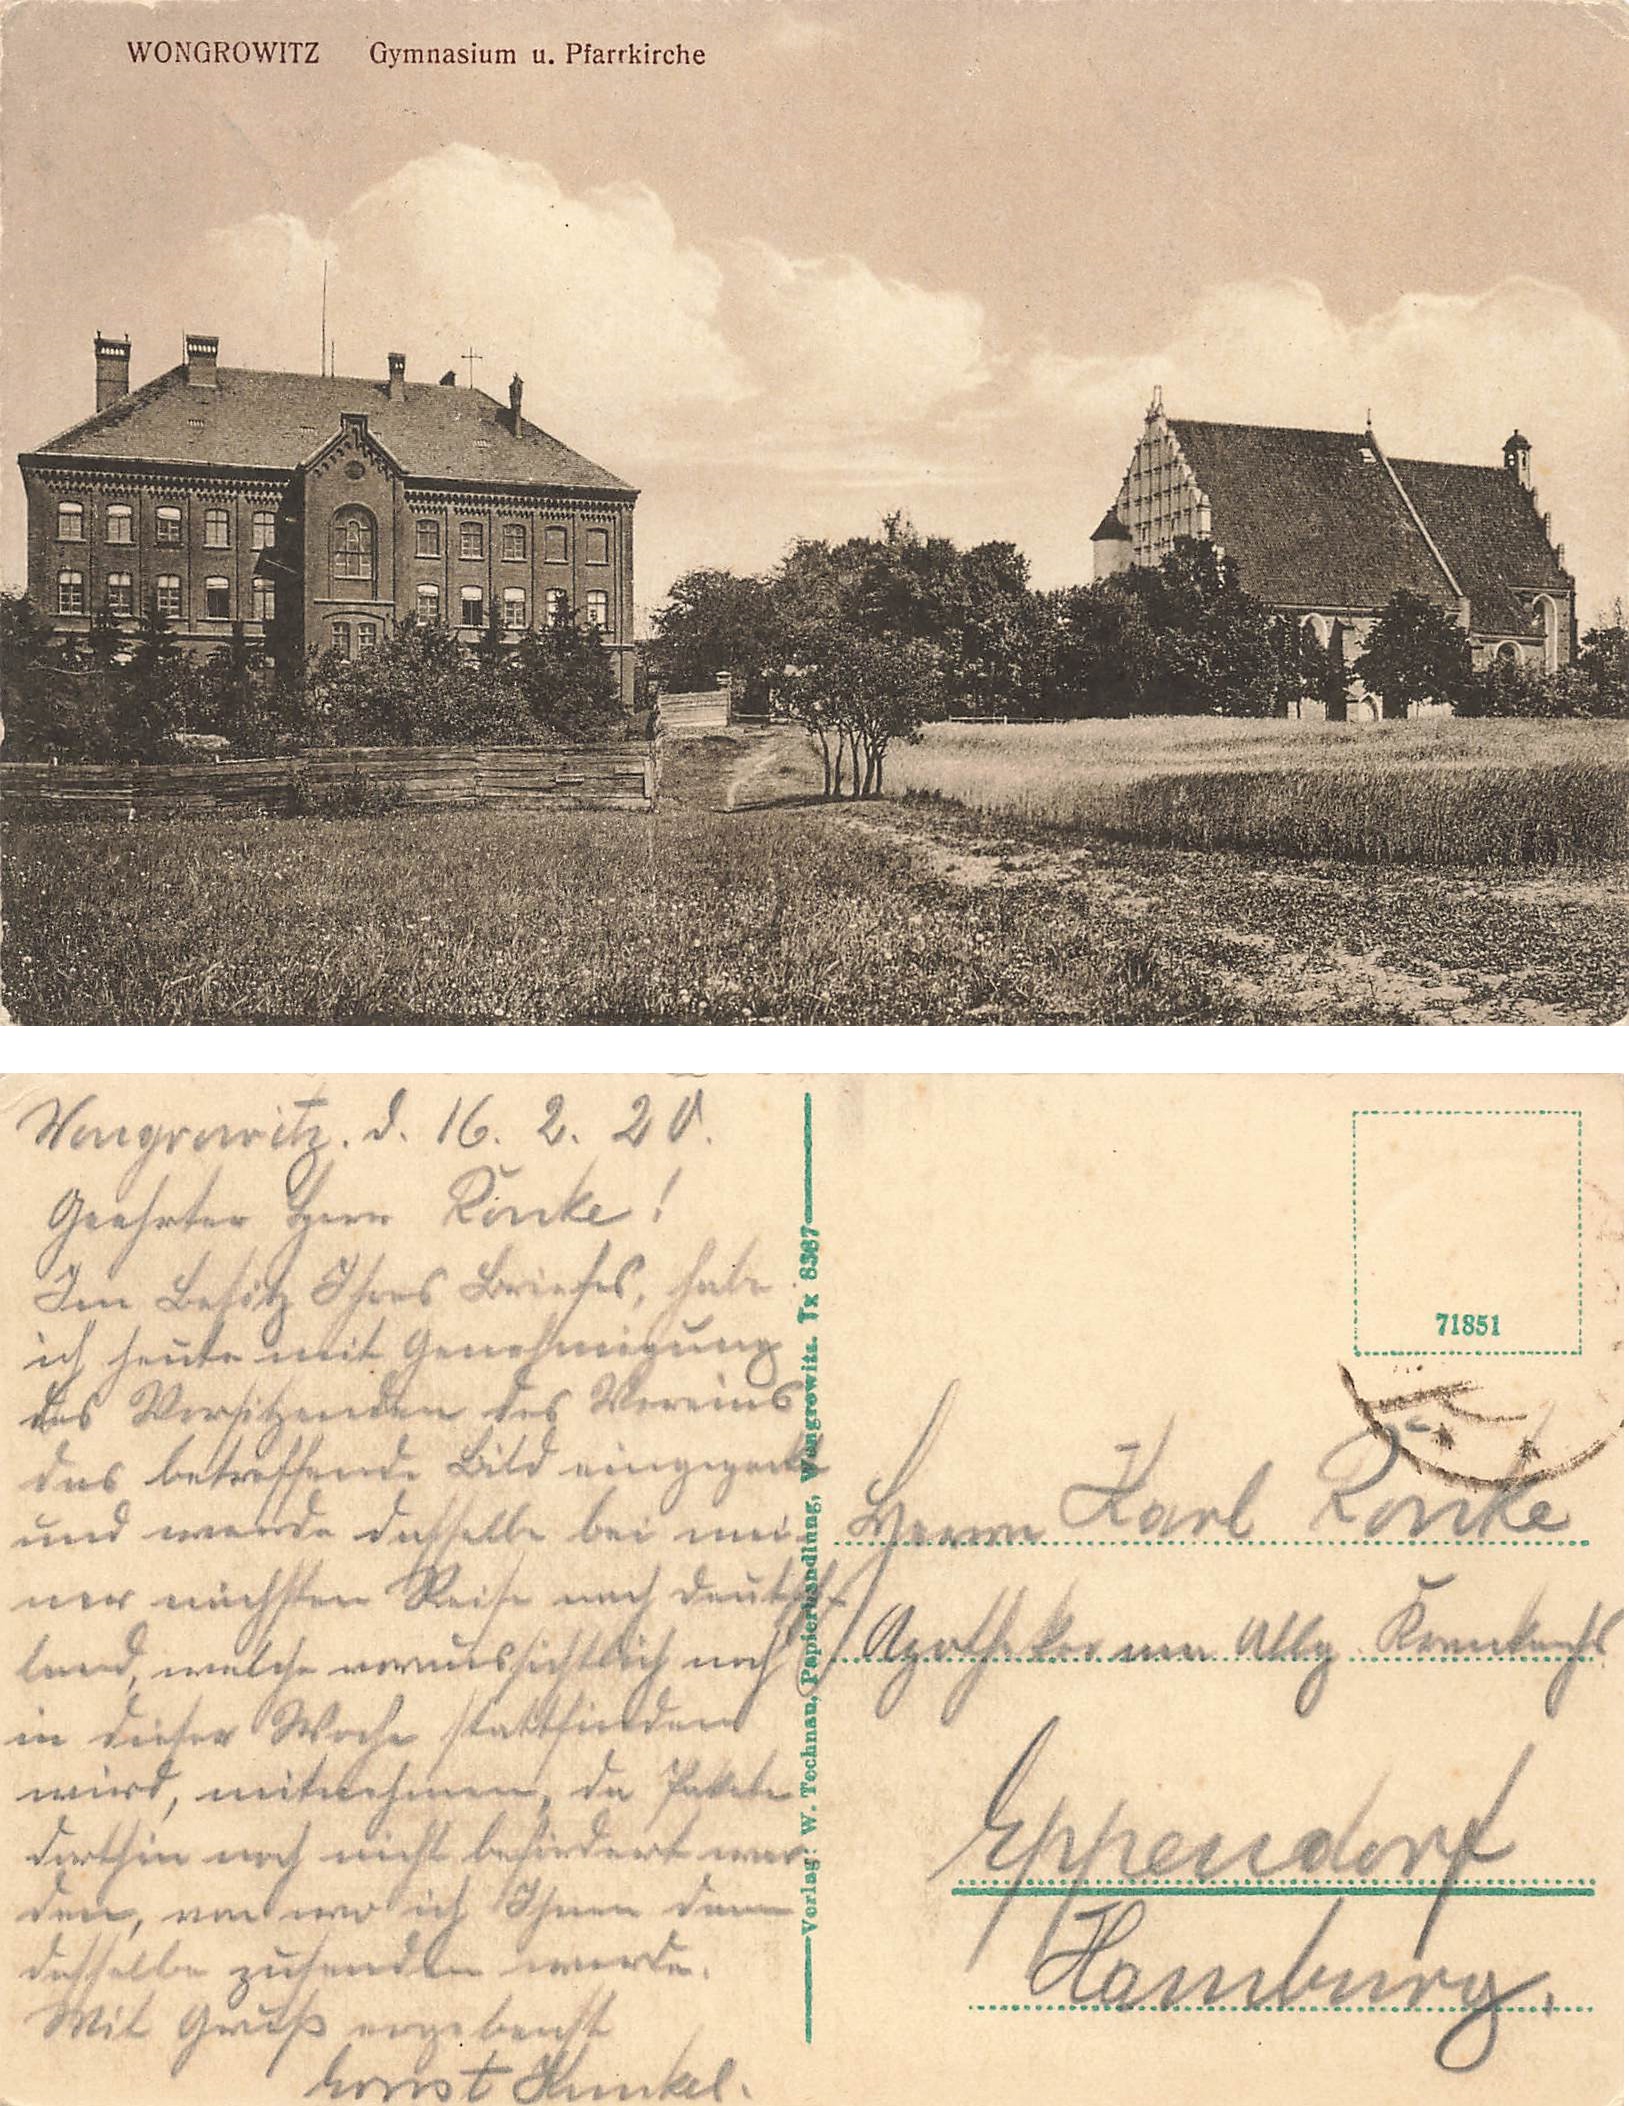 WONGROWITZ Gymnasium u. Pfarrkirche
Wongrowitz. d. 16. 2. 20.
Geehrter Herr Ronke!
Im Besitz Ihres Briefes, habe
ich heute mit Genehmigung
des Vorsitzenden des Vereins
das betreffende Bild eingepackt
und werde dasselbe bei mei-
ner nächsten Reise nach Deutsch-
land, welche voraussichtlich noch
in dieser Woche stattfinden
wird, mitnehmen, da Pakete
dorthin noch nicht befördert wer-
den, von wo ich Ihnen dann
dasselbe zusenden werde.
Mit Gruß ergebenst
Ernst Kunkel.
Verlag: W. Technau, Papierhandlung, Wongrowitz. Tx 6367
71851
Herrn Karl Ronke
Apotheker am Allg. Krankenhs.
Eppendorf
Hamburg.